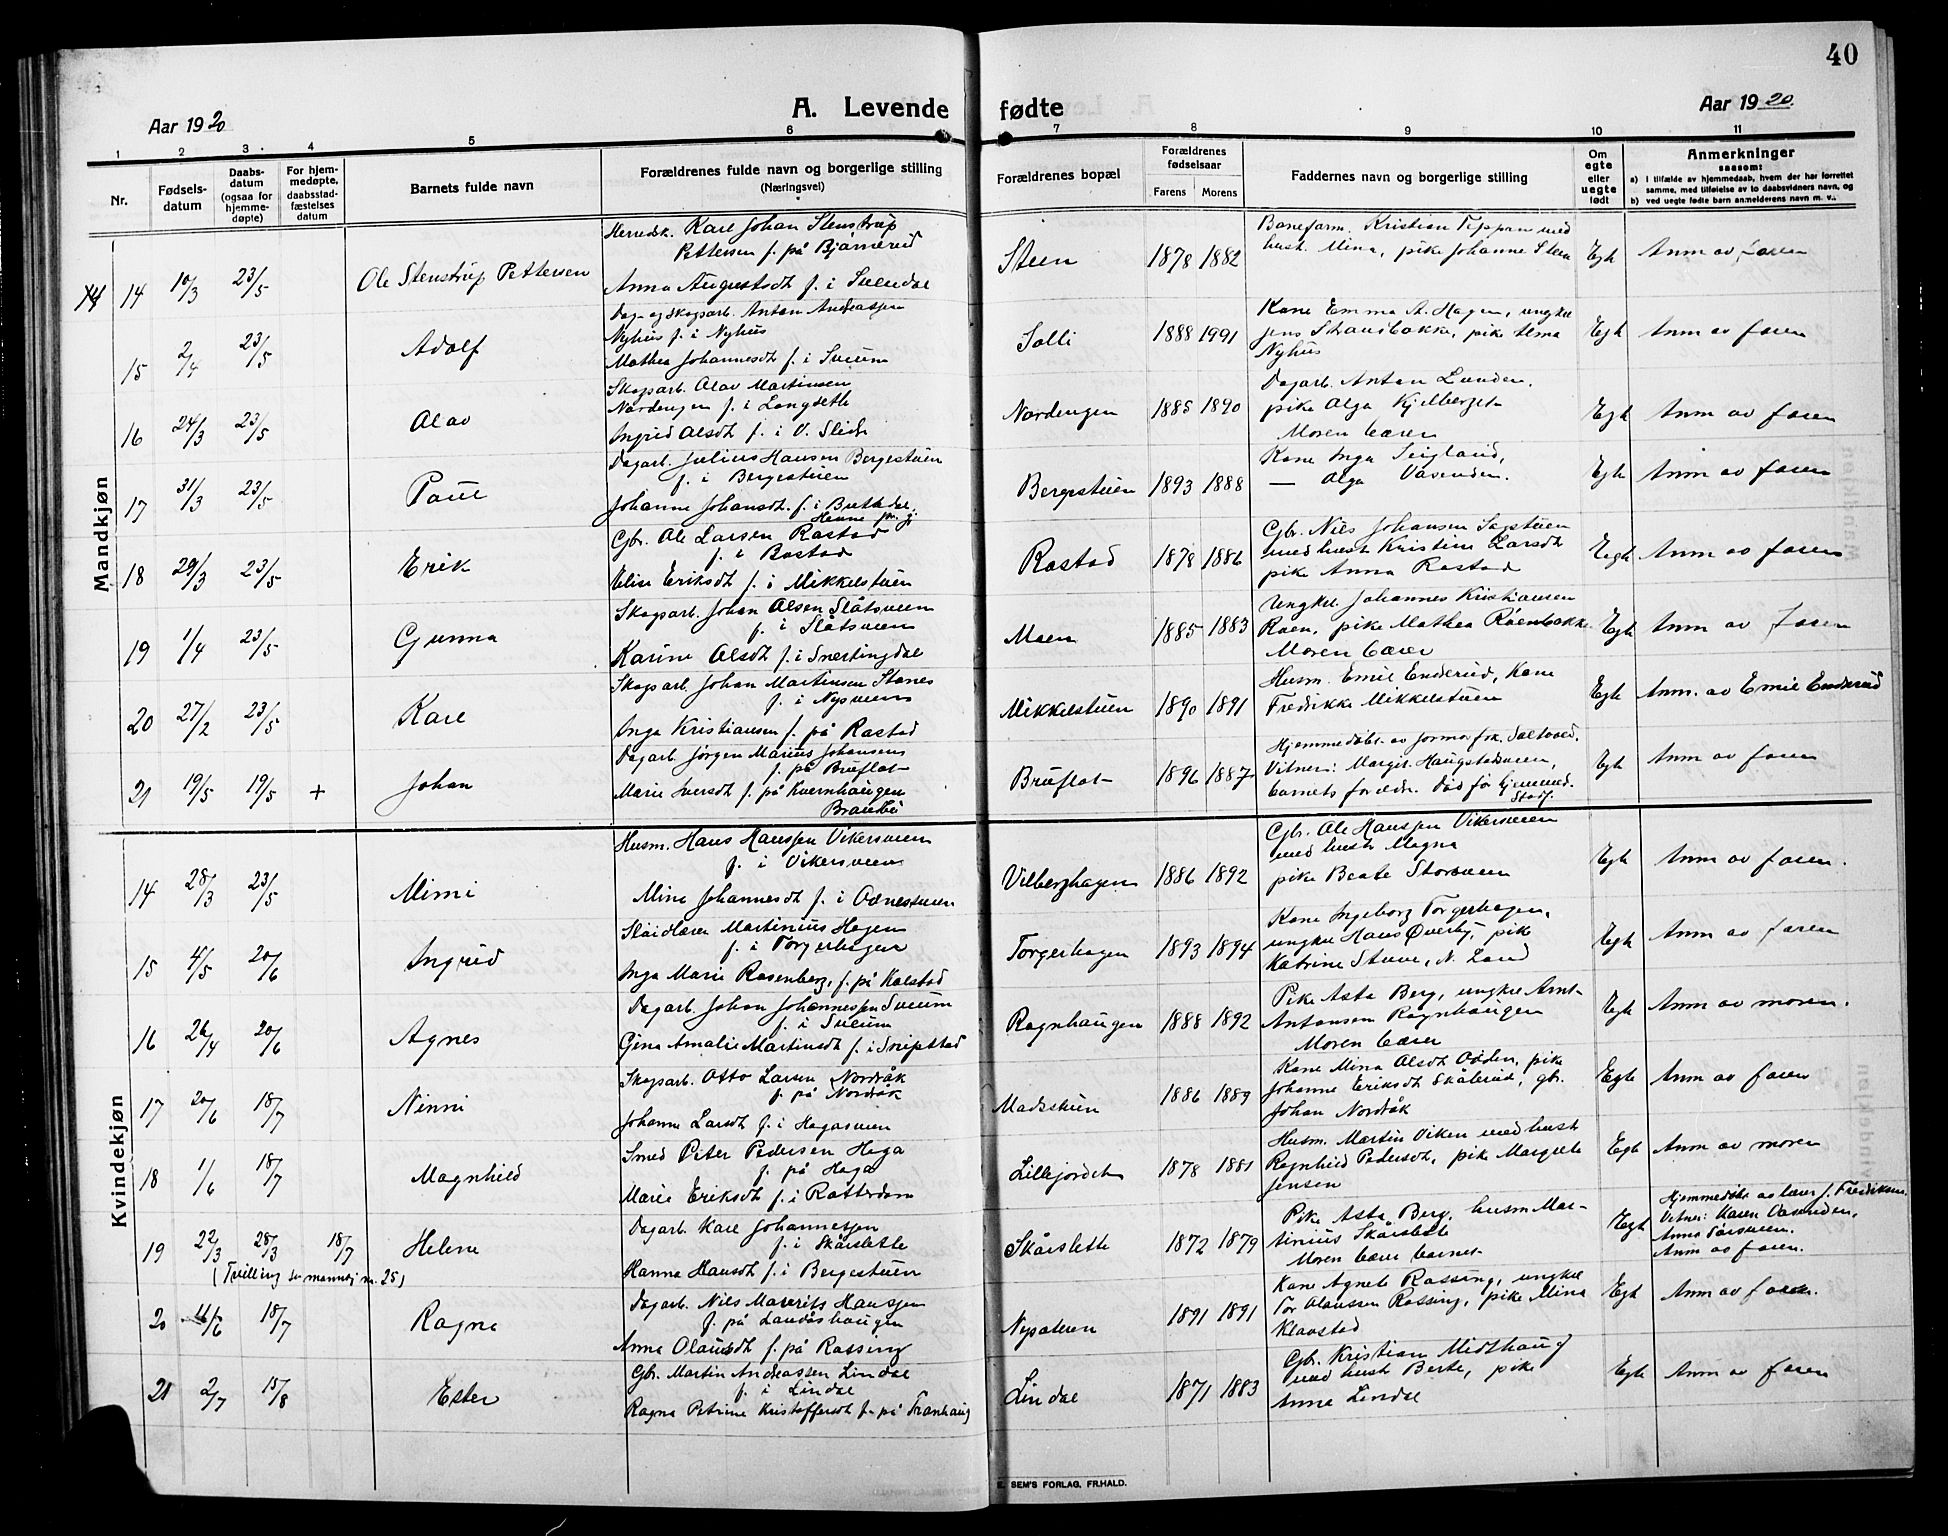 40
A. Levende fødte
Aar 1920
Aar 1920.
1 2 3 4 5 6 7 8 9 10 11
Nr.
Fødsels-
datum
Daabs-
datum
(ogsaa for
hjemme-
døpte)
For hjem-
medøpte,
daabsstad-
fæstelses
datum
Barnets fulde navn
Forældrenes fulde navn og borgerlige stilling
(Næringsvei)
Forældrenes bopæl
Forældrenes
fødselsaar
Farens Morens
Faddernes navn og borgerlige stilling
Om
egte
eller
uegte
født
Anmerkninger
saasom:
a) i tilfælde av hjemmedaab, hvem der har forrettet
samme, med tilføielse av to daabsvidners navn, og
b) ved uegte fødte barn anmelderens navn m. v.
Mandkjøn
14 10/3 23/5 Ole Stenstrup Pettersen
Herredsk. Karl Johan Stenstrup
Pettersen f. på Bjørnerud
Anna Augustsdt f. i Svendal
Steen 1878 1882
Baneform. Kristian Tippan med
hust. Mina, pike Johanne Steen
Egt Anm av faren
15 2/4 23/5 Adolf
Dag- og skogsarb. Anton Andreassen
Nyhus f. i Nyhus
Mathea Johannesdt f. i Sveum
Solli 1888 1991
Kone Emma A. Hagen, ungkar
Jens Strandbakke, pike Alma
Nyhus
Egt Anm av faren
16 24/3 23/5 Olav
Skogsarb. Olav Martinsen
Nordengen f. i Longslette
Ingrid Olsdt f. i V. Slidre
Nordengen 1885 1890
Dagarb. Anton Lunden.
pike Olga Kjelberget
Moren bærer
Egt Anm av faren
17 31/3 23/5 Paul
Dagarb. Julius Hansen Bergestuen
f. i Bergestuen
Johanne Johansdt. f. i
Bergestuen 1893 1888
Kone Inga Seigland,
— Olga Vasenden.
Egt Anm av faren
18 29/3 23/5 Erik
Gbr. Ole Larsen Rostad
f. i Rostad
Elise Eriksdt f. i Mikkelstuen
Rostad 1878 1886
Gbr. Nils Johansen Sagstuen
med hust Kristine Larsdt
pike Anna Rostad
Egt Anm av faren
19 1/4 23/5 Gunnar
Skogsarb. Johan Olsen Slåtsveen
f. i Slåtsveen
Karine Olsdt f. i Snertingdal
Moen 1885 1883
Ungkar. Johannes Kristiansen
Roen, pike Mathea Røenbakke
Moren bærer
Egt Anm av faren
20 27/2 23/5 Kåre
Skogsarb. Johan Martinsen Stones
f. i Nysveen
Inga Kristiansen f. på Rostad
Mikkelstuen 1890 1891
Husm. Emil Enderud, Kone
Fredrikke Mikkelstuen
Egt Anm. av Emil Enderud
21 19/5 19/5 + Johan
Dagarb. Jørgen Marius Johansen
f. på Bruflot
Marie Iversdt f. på Kvernhaugen
Brandbu
Bruflot 1896 1887
Hjemmedøbt av jormorfrk. Saltved.
Vitner: Margit Haugstadsveen,
barnets foreldr. Død før hjemmed.
stadf.
Egt Anm av faren
Kvindekjøn
14 28/3 23/5 Mimi
Husm. Hans Hanssen Vikersveen
f. i Vikersveen
Mina Johannesdt f. i Odnestuen
Vilberghagen 1886 1892
Gbr. Ole Hanssen Vikersveen
med hust Magna
pike Beate Storsveen
Egt Anm av faren.
15 4/5 20/6 Ingrid
Martinius Hagen
f. i Torgerhagen
Inga Marie Rosenberg, f. på Kolstad
Torgerhagen 1893 1894
Kone Ingeborg Torgerhagen,
ungkar Hans Øverby, pike
Katrine Stuve, N. Land
Egt Anm av faren
16 26/4 20/6 Agnes
Dagarb. Johan Johannessen Sveum
f. i Sveum
Gina Amalie Martinsdt f. i Sveipstad
Rognhaugen 1888 1892
Pike Asta Berg, ungkar Arnt
Antonsen Rognhaugen
Moren bærer
Egt Anm av moren.
17 20/6 18/7 Ninni
Skogsarb. Otto Larsen Nordråk
f. på Nordråk
Johanne Larsdt f. i Hagasveen
Madsstuen 1886 1889
Kone Mina Olsdt Odden, pike
Johanne Eriksdt Skålerud, gbr.
Johan Nordråk
Egt Anm av faren
18 1/6 18/7 Magnhild
Smed Peter Pedersen Haga
f. på Haga
Marie Eriksdt f. i Rotterdam
Lillejordet 1878 1881
Husm. Martin Viken med hust
Ragnhild Pedersdt, pike Margrete
Jensen
Egt Anm av moren
19 22/3 28/3 18/7 Helene
(Tvilling se mannkj nr. 25)
Dagarb. Kare Johannessen
f. i Skårslette
Hanna Hansdt f. i Bergestuen
Skårslette 1872 1879
Pike Asta Berg, husm Mar-
tinius Skårslette
Moren bærer barnet
Egt
Hjemmedøbt av lærer J. Fredriksen
Vitner: Karen Vasenden,
Anna Torsveen.
Anm av faren.
20 4/6 18/7 Ragna
Dagarb. Nils Mauritz Hanssen
f. på Landåshaugen
Anna Olausdt f. på Rossing
Nyseteren 1891 1891
Kone Agnete Rossing, ungkar
Tor Olaussen Rossing, pike Mina
Klaastad
Egt Anm av faren.
21 2/7 15/8 Ester
Gbr. Martin Andreassen Lindal
f. i Lindal
Ragna Petrine Kristoffersdt f. på Tranhaug
Lindal 1871 1883
Gbr. Kristian Midthaug
med hust Berte, pike
Anna Lindal
Egt Anm av faren
E. SEM'S FORLAG, FR.HALD.